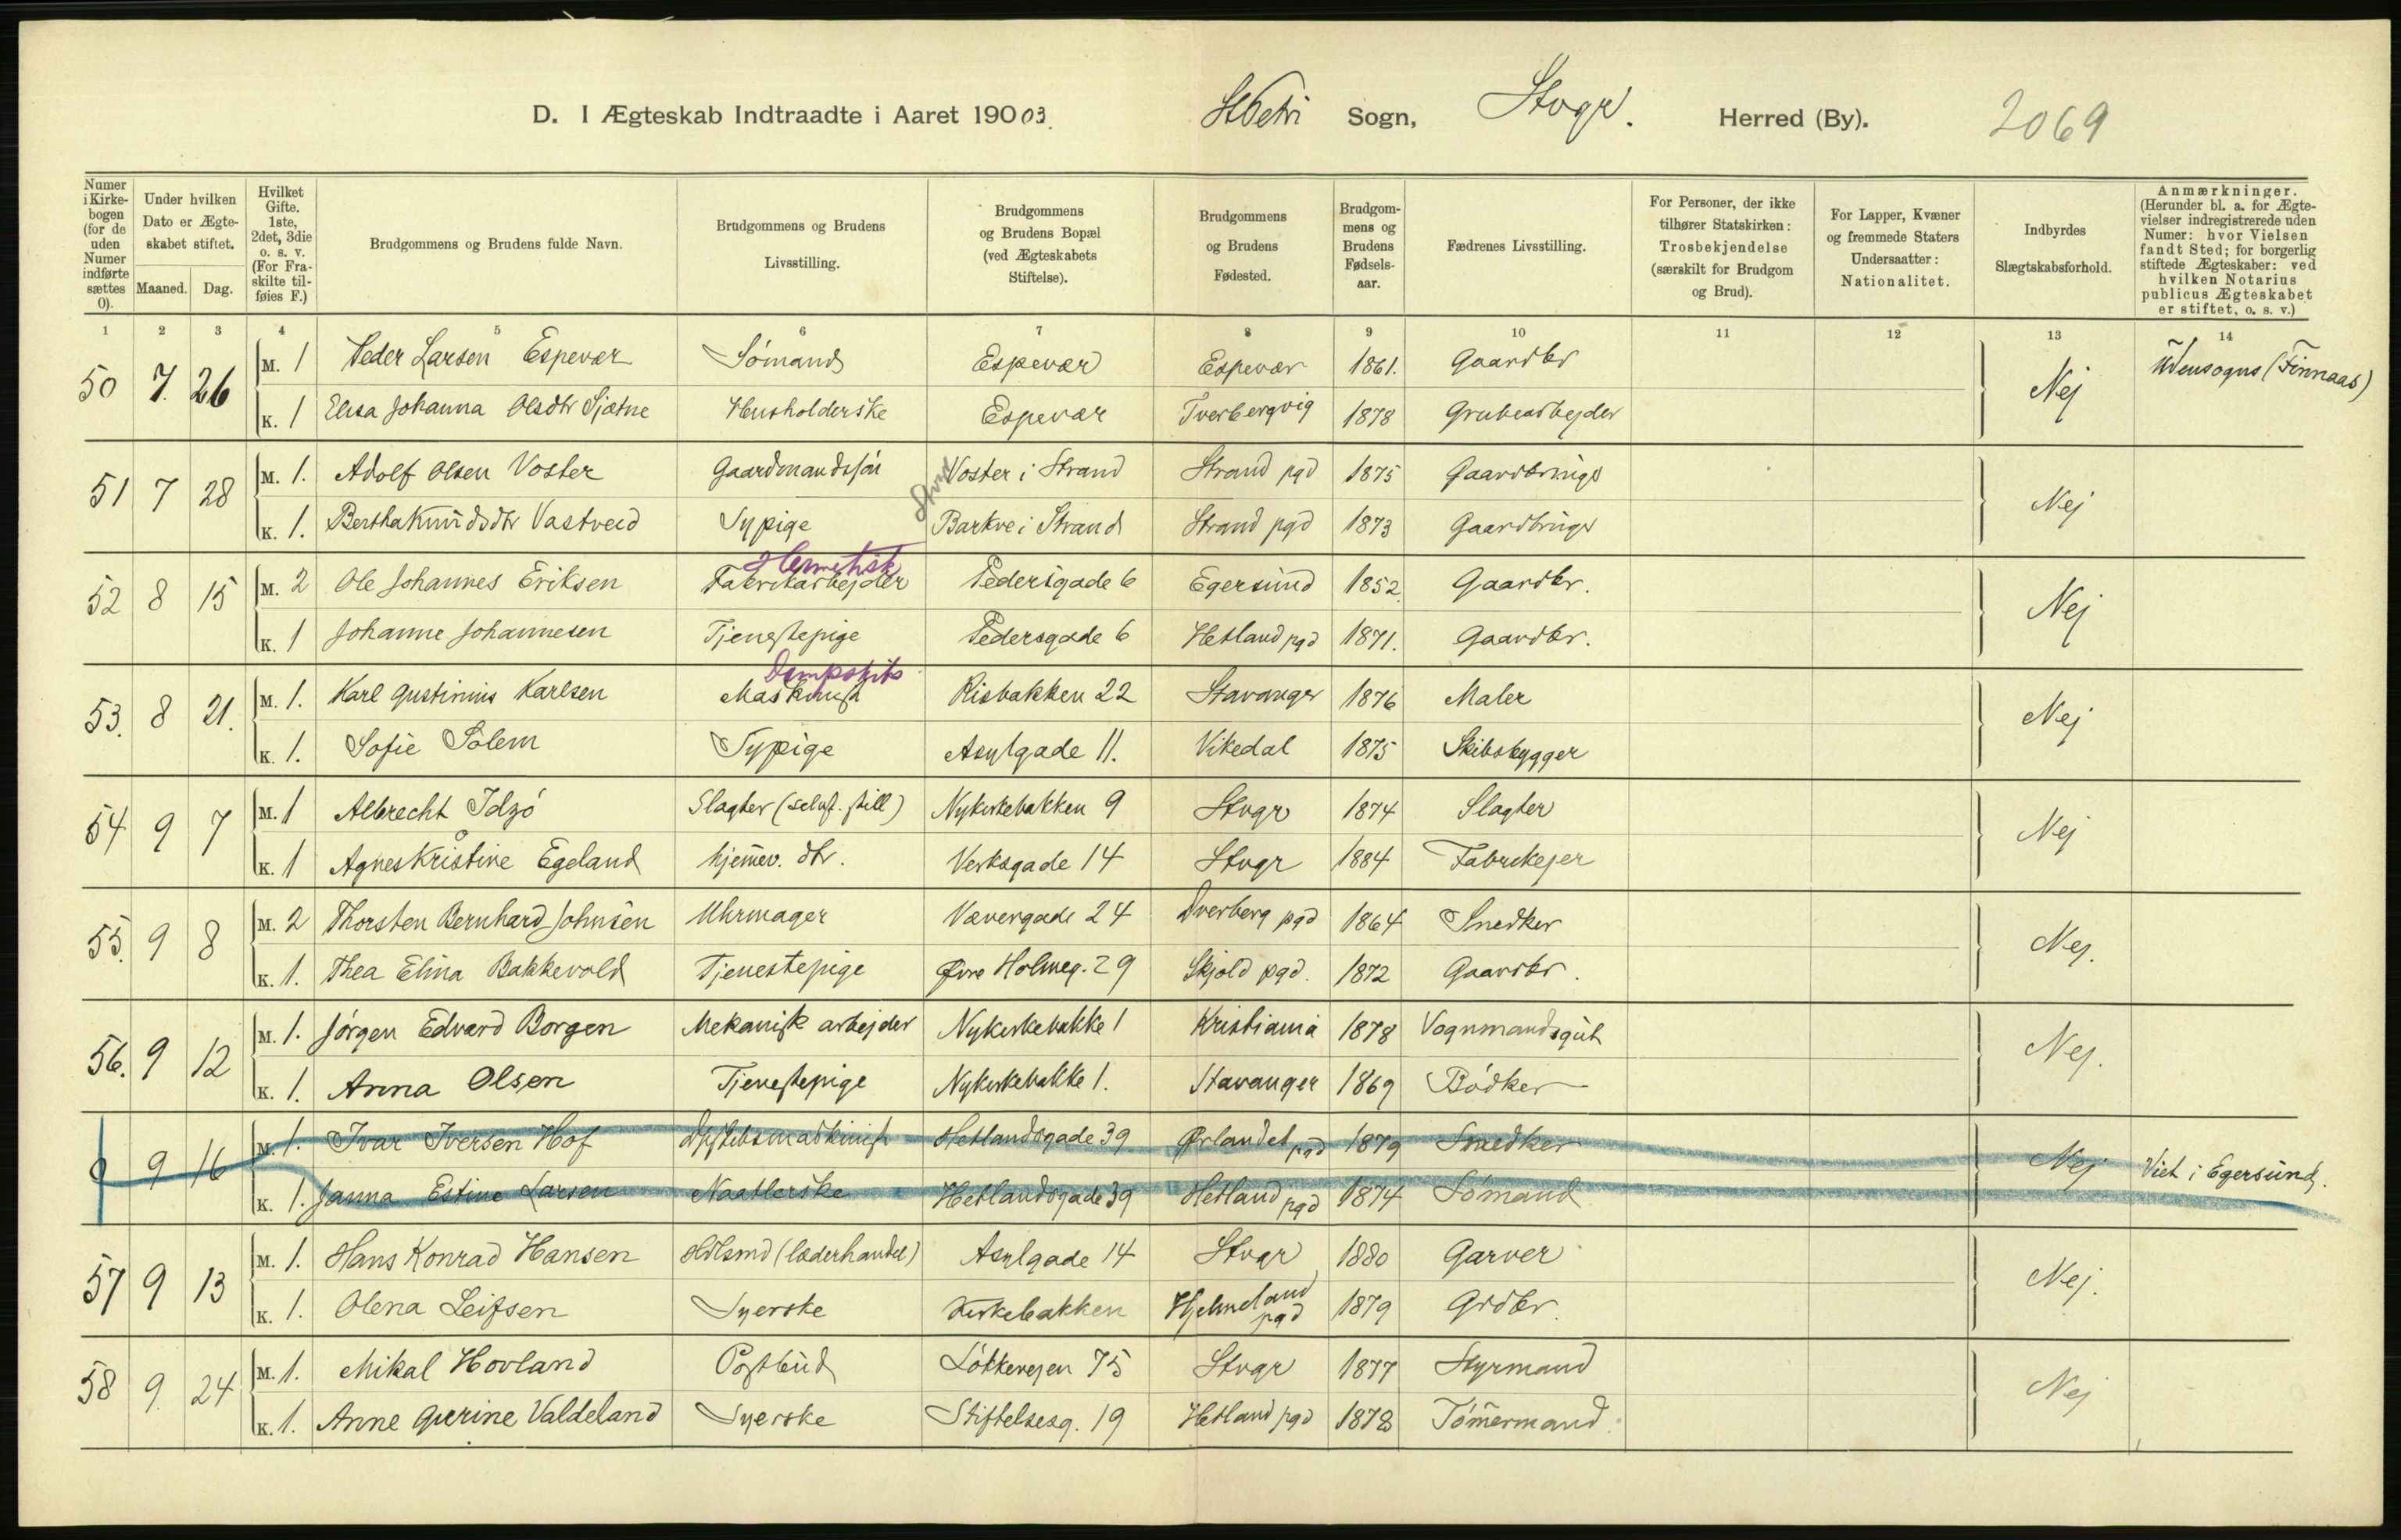 D. I Ægteskab Indtraadte i Aaret 19003. St Petri Sogn, Stvgr. Herred (By). 2069
Numer i Kirkebogen (for de uden Numer indførte sættes 0). Under hvilken Dato er Ægteskabet stiftet. Maaned. Dag. Hvilket Gifte. 1ste, 2det, 3die o. s. v. (For Fraskilte tilføies F.) Brudgommens og Brudens fulde Navn. Brudgommens og Brudens Livsstilling. Brudgommens og Brudens Bopæl (ved Ægteskabets Stiftelse). Brudgommens og Brudens Fødested. Brudgommens og Brudens Fødselsaar. Fædrenes Livsstilling. For Personer, der ikke tilhører Statskirken: Trosbekjendelse (særskilt for Brudgom og Brud). For Lapper, Kvæner og fremmede Staters Undersaatter: Nationalitet. Indbyrdes Slægtskabsforhold. Anmærkninger. (Herunder bl. a. for Ægtevielser indregistrerede uden Numer: hvor Vielsen fandt Sted; for borgerlig stiftede Ægteskaber: ved hvilken Notarius publicus Ægteskabet er stiftet, o. s. v.)
1 2 3 4 5 6 7 8 9 10 11 12 13 14
50 7. 26 M. 1 Peder Larsen Espevær Sømand Espevær Espevær 1861. Gaardbr Nej Udensogns (Finnaas)
K. 1 Elisa Johanna Olsdtr Sjøtne Husholderske Espevær Tverbergvig 1878 Grubearbejder
51 7 28 M. 1. Adolf Olsen Voster Gaardmandssøn Voster i Strand Strand pgd 1875 Gaardbruger Nej
K. 1. Bertha Knudsdtr Vastveid Sypige Barkve i Strand Strand pgd 1873 Gaardbruger
Hermetisk
52 8 15 M. 2 Ole Johannes Eriksen Fabrikarbejder Pedersgade 6 Egersund 1852 Gaardbr. Nej
K. 1 Johanne Johannesen Tjenestepige Pedersgade 6 Hetland pgd 1871. Gaardbr.
Dampskibs
53. 8 21. M. 1. Karl Gustinius Karlsen Maskinist Risbakken 22 Stavanger 1876 Maler Nej
K. 1. Sofie Solem Sypige Asylgade 11. Vikedal 1875 Skibsbygger
54 9 7 M. 1 Albrecht Idsø Slagter (selvst. still) Nykirkebakken 9 Stvgr 1874 Slagter Nej
K. 1 Agnes Kristine Egeland hjemmev. dtr. Verksgade 14 Stvgr 1884 Fabrikejer
55. 9 8 M. 2 Thorsten Bernhard Johnsen Uhrmager Vævergade 24 Dverberg pgd 1864 Snedker Nej.
K. 1. Thea Elina Bakkevold Tjenestepige Øvre Holmeg. 29 Skjold pgd. 1872 Gaardbr.
56. 9 12 M. 1. Jørgen Edvard Borgen Mekanisk arbejder Nykirkebakke 1 Kristiania 1878 Vognmandsgut Nej.
K. 1. Anna Olsen Tjenestepige Nykirkebakke 1. Stavanger 1869 Bødker
0 9 16 M. 1. Ivar Iversen Hof Dpskibsmaskinist Hetlandsgade 39 Ørlandet pgd 1879 Snedker Nej Viet i Egersund.
K. 1. Janna Estine Larsen Naatlerske Hetlandsgade 39 Hetland pgd 1874 Sømand
57 9 13 M. 1. Hans Konrad Hansen Hdlsmd (læderhandel) Asylgade 14 Stvgr 1880 Garver Nej.
K. 1. Olena Leifsen Syerske Kirkebakken Hjelmeland pgd 1879 Grdbr.
58 9. 24 M. 1. Mikal Hovland Postbud Løkkevejen 75 Stvgr 1877 Styrmand Nej
K. 1. Anne Gurine Valdeland Syerske Stiftelsesg. 19 Hetland pgd 1878 Tømmermand